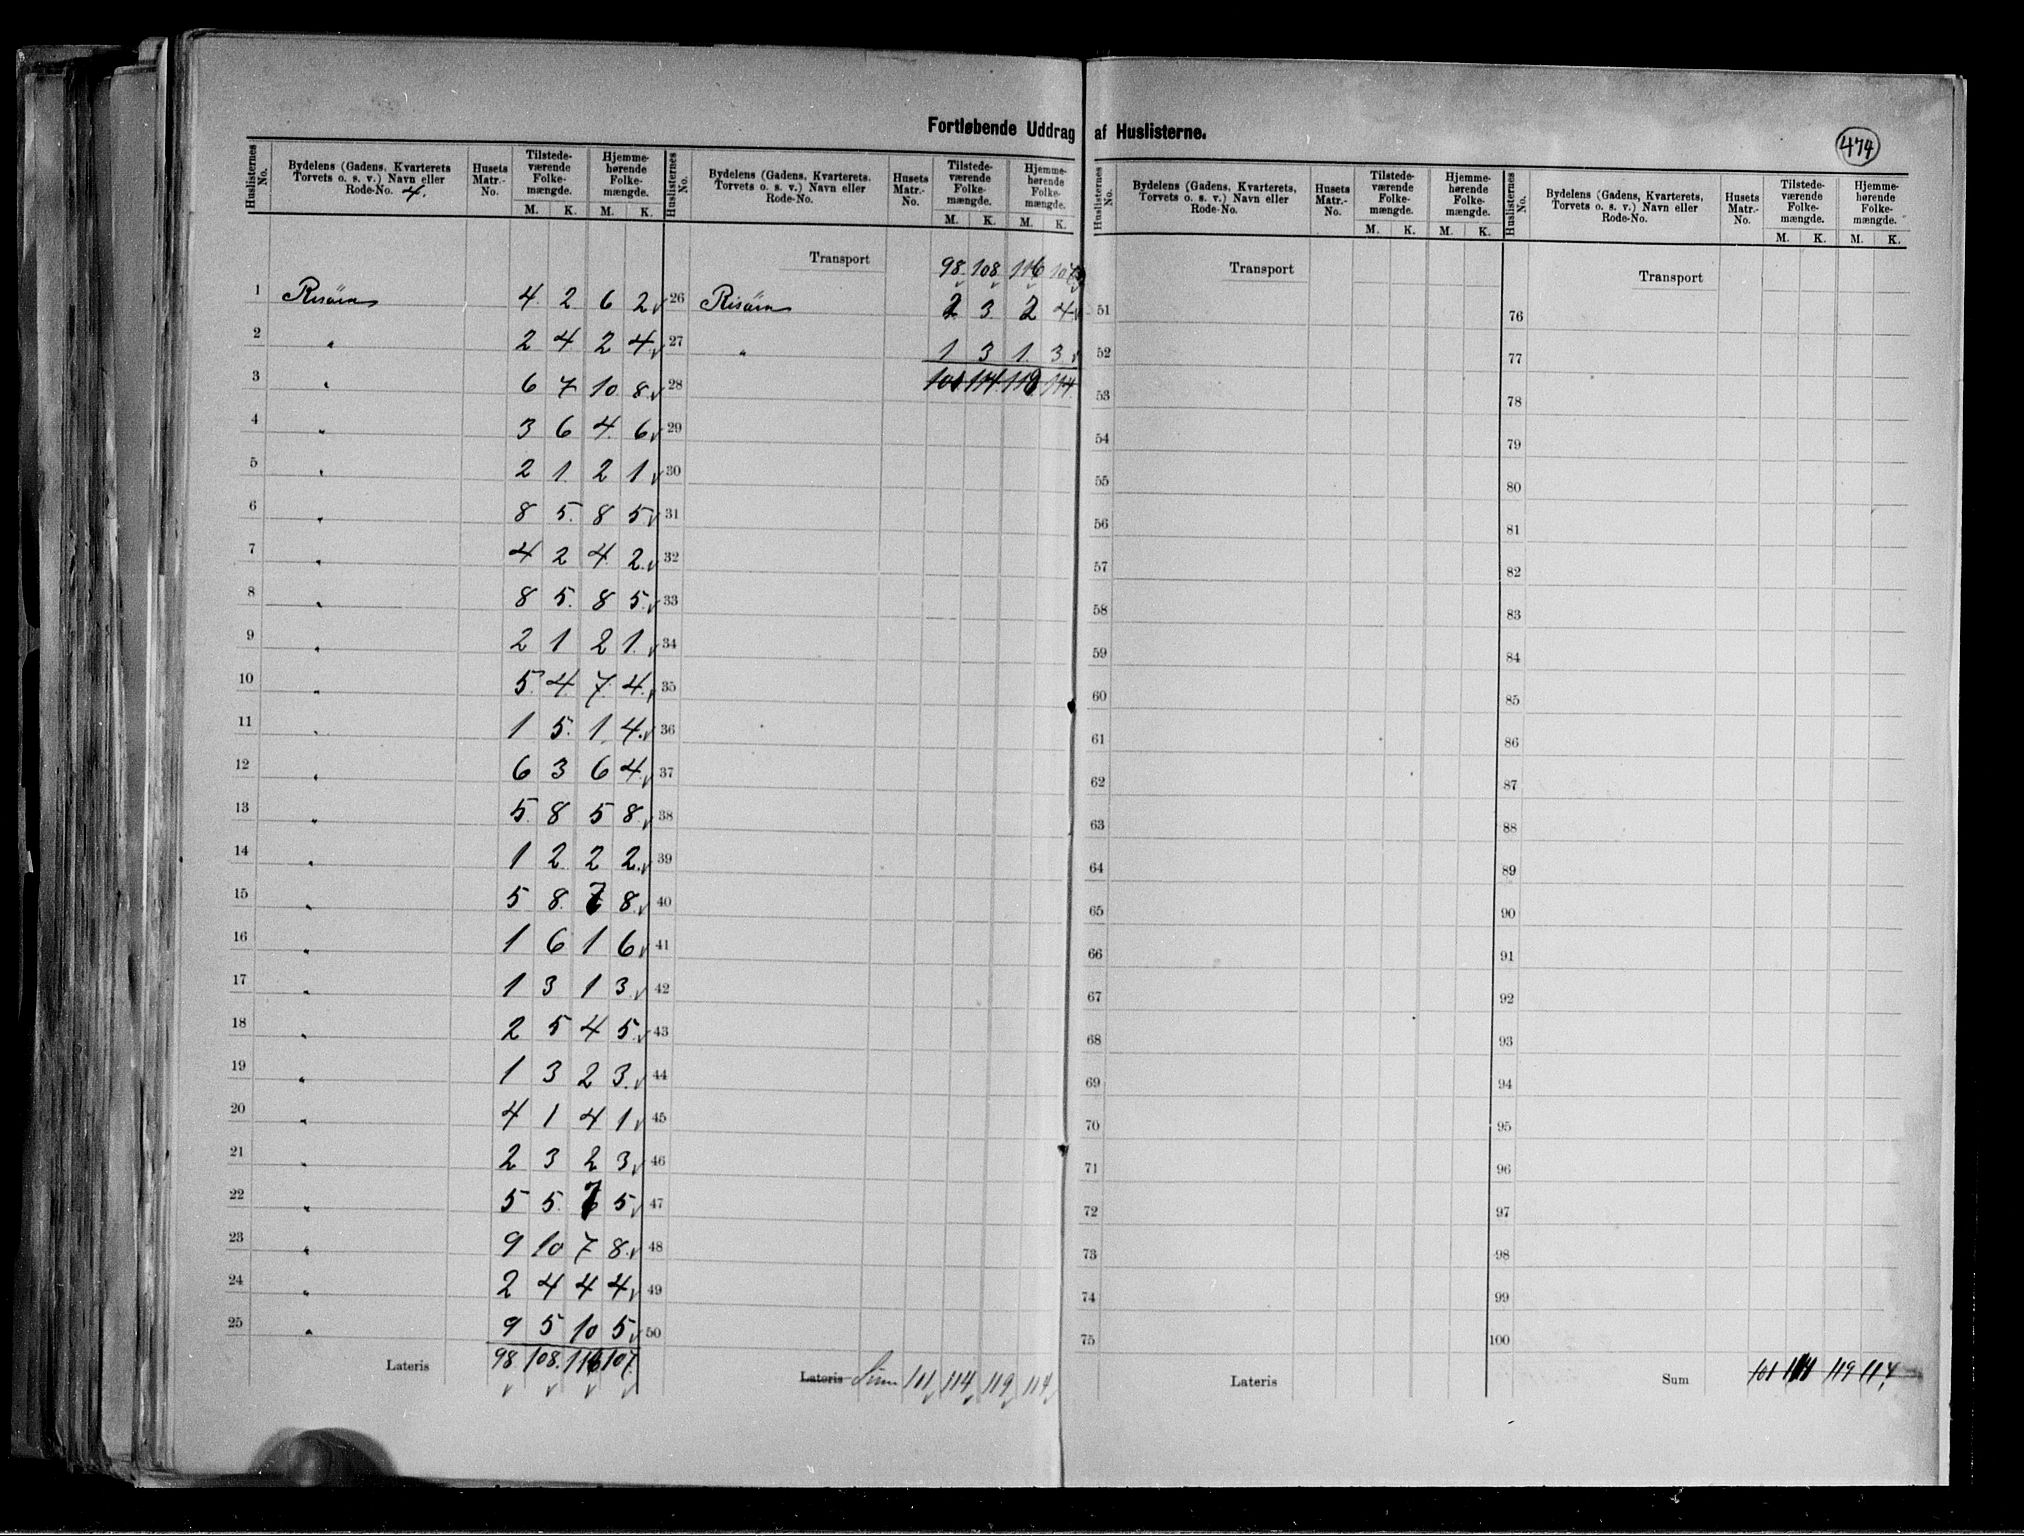 Fortløbende Uddrag af Huslisterne.
474
Huslisternes No. | Bydelens (Gadens, Kvarterets Torvets o. s. v.) Navn eller Rode-No. 4. | Husets Matr.-No. | Tilstede-værende Folke-mængde. M. K. | Hjemme-hørende Folke-mængde. M. K.
1 Risöen 4 2 6 2
2 " 2 4 2 4
3 " 6 7 10 8
4 " 3 6 4 6
5 " 2 1 2 1
6 " 8 5 8 5
7 " 4 2 4 2
8 " 8 5 8 5
9 " 2 1 2 1
10 " 5 4 7 4
11 " 1 5 1 4
12 " 6 3 6 4
13 " 5 8 5 8
14 " 1 2 2 2
15 " 5 8 7 8
16 " 1 6 1 6
17 " 1 3 1 3
18 " 2 5 4 5
19 " 1 3 2 3
20 " 4 1 4 1
21 " 2 3 2 3
22 " 5 5 7 5
23 " 9 10 7 8
24 " 2 4 4 4
25 " 9 5 10 5
Lateris 98 108 116 107
Huslisternes No. | Bydelens (Gadens, Kvarterets, Torvets o. s. v.) Navn eller Rode-No. | Husets Matr.-No. | Tilstede-værende Folke-mængde. M. K. | Hjemme-hørende Folke-mængde. M. K.
Transport 98 108 116 107
26 Risöen 2 3 2 4
27 " 1 3 1 3
28 101 114 119 114
29
30
31
32
33
34
35
36
37
38
39
40
41
42
43
44
45
46
47
48
49
50
Lateris Sum 101 114 119 114
Huslisternes No. | Bydelens (Gadens, Kvarterets, Torvets o. s. v.) Navn eller Rode-No. | Husets Matr.-No. | Tilstede-værende Folke-mængde. M. K. | Hjemme-hørende Folke-mængde. M. K.
Transport
51
52
53
54
55
56
57
58
59
60
61
62
63
64
65
66
67
68
69
70
71
72
73
74
75
Lateris
Huslisternes No. | Bydelens (Gadens, Kvarterets, Torvets o. s. v.) Navn eller Rode-No. | Husets Matr.-No. | Tilstede-værende Folke-mængde. M. K. | Hjemme-hørende Folke-mængde. M. K.
Transport
76
77
78
79
80
81
82
83
84
85
86
87
88
89
90
91
92
93
94
95
96
97
98
99
100
Sum 101 114 119 114